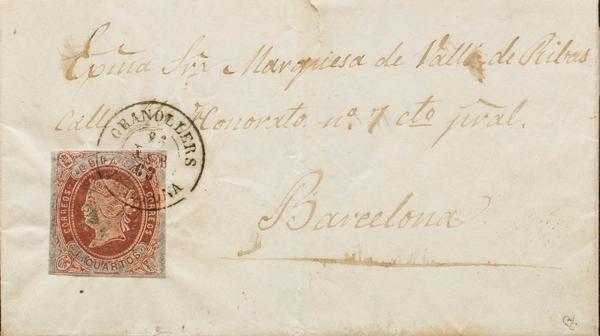 Exma Srª Marquesa de Valle de Ribas
calle Honorato nº 7 cto pral.
Barcelona
GRANOLLERS
63
ESPAÑA
CORREOS
CORREOS
4 CUARTOS